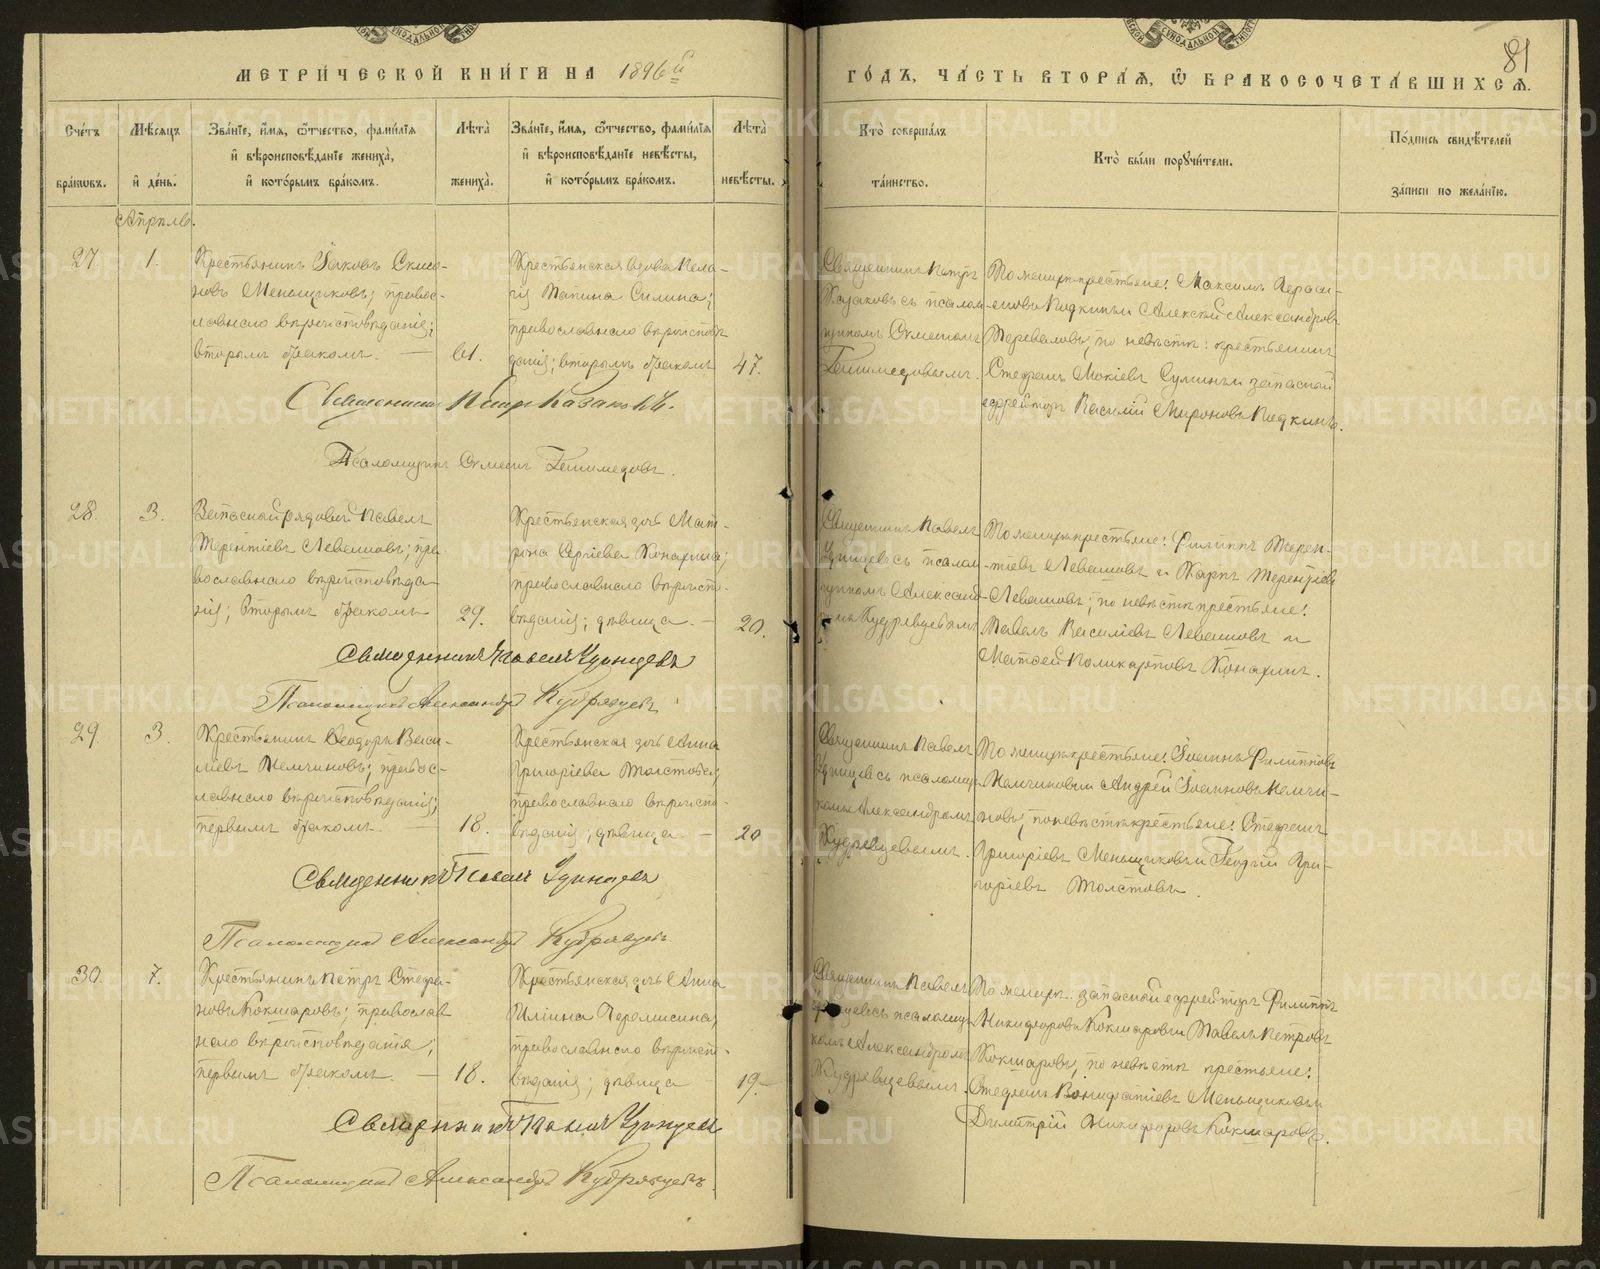 МЕТРИ́ЧЕСКОЙ КНИ́ГИ НА 1896й
ГО́ДЪ, ЧА́СТЬ ВТОРА́Я, Ѿ БРАКОСОЧЕТА́ВШИХСЯ.
81
Сче́тъ бра́ковъ.
Мѣ́сяцъ и де́нь.
Зва́нїе, и́мя, ѻ́тчество, фами́лїя и вѣроисповѣ́данїе жениха̀, и кото́рымъ бра́комъ.
Лѣ́та жениха̀.
Зва́нїе, и́мя, ѻ́тчество, фами́лїя и вѣроисповѣ́данїе невѣ́сты, и кото́рымъ бра́комъ.
Лѣ́та невѣ́сты.
Кто̀ соверша́лъ та́инство.
Кто̀ бы́ли порꙋчи́тели.
По́дпись свидѣ́телей за́писи по жела́нїю.
Апрѣль.
27
1.
Крестьянинъ Іаковъ Симо-
новъ Меньщиковъ; правос-
лавнаго вѣроисповѣданія;
вторымъ бракомъ. —
61.
Крестьянская вдова Пела-
гія Силина;
православнаго вѣроисповѣ-
данія; вторымъ бракомъ
47.
Священникъ Петръ
Казаковъ съ псалом-
щикомъ
По женихѣ крестьяне: Максимъ Гераси-
мовъ Алексѣй Александровъ
по невѣстѣ: крестьянинъ
Стефанъ запасный
ефрейторъ Василій Мироновъ
Священникъ Петръ Казаковъ.
Псаломщикъ
28.
3.
Запасный рядовой Павелъ
Терентіевъ Левашовъ; пра-
вославнаго вѣроисповѣда-
нія; вторымъ бракомъ
29.
Крестьянская дочь Мат-
рона Сергіева Конахина;
православнаго вѣроиспо-
вѣданія; дѣвица. —
20.
Священникъ Павелъ
Удинцевъ съ псалом-
щикомъ Александ-
Кудрявцевымъ
По женихѣ крестьяне: Филиппъ Терен-
тіевъ Левашовъ и Карпъ Терентіевъ
Левашовъ; по невѣстѣ крестьяне:
Павелъ Василіевъ Левашовъ и
Матѳей Поликарповъ Конахинъ.
Священникъ Павелъ Удинцевъ
Псаломщикъ Александръ Кудрявцевъ
29
3.
Крестьянинъ Ѳеодоръ Васи-
ліевъ Мемчиновъ; правос-
лавнаго вѣроисповѣданія;
первымъ бракомъ. —
18.
Крестьянская дочь Анна
Григоріева Толстова;
православнаго вѣроиспо-
вѣданія; дѣвица —
20
Священникъ Павелъ
Удинцевъ съ псаломщи-
комъ Александромъ
Кудрявцевымъ.
По женихѣ крестьяне: Іоаннъ Филипповъ
Мемчиновъ и Андрей Іоанновъ Мемчи-
новъ; по невѣстѣ крестьяне: Стефанъ
Григоріевъ Меньщиковъ и Георгій Гри-
горіевъ Толстовъ.
Священникъ Павелъ Удинцевъ
Псаломщикъ Александръ Кудрявцевъ
30.
7.
Крестьянинъ Петръ Стефа-
новъ Кокшаровъ; православ-
наго вѣроисповѣданія;
первымъ бракомъ. —
18.
Крестьянская дочь Анна
Иліина
православнаго вѣроиспо-
вѣданія; дѣвица
19.
Священникъ Павелъ
Удинцевъ съ псаломщи-
комъ Александромъ
Кудрявцевымъ.
По женихѣ: запасной ефрейторъ Филиппъ
Никифоровъ Кокшаровъ и Павелъ Петровъ
Кокшаровъ; по невѣстѣ крестьяне:
Стефанъ Вонифатіевъ Меньщиковъ и
Димитрій Никифоровъ Кокшаровъ.
Священникъ Павелъ Удинцевъ
Псаломщикъ Александръ Кудрявцевъ.
METRIKI.GASO-URAL.RU